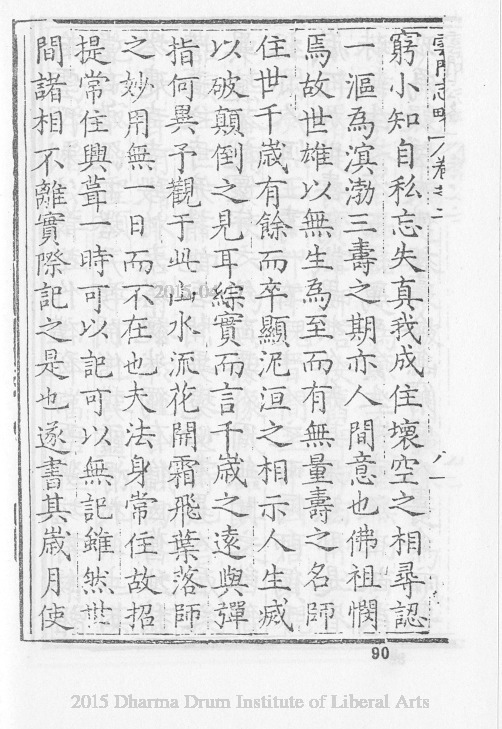 雲門志略 卷之二 八一
窮小知自私忘失真我成住壞空之相尋認
一漚為溟渤三壽之期亦人間意也佛祖憫
焉故世雄以無生為至而有無量壽之名師
住世千歲有餘而卒顯泥洹之相示人生滅
以破顛倒之見耳綜實而言千歲之遠與彈
指何異予觀于此山水流花開霜飛葉落師
之妙用無一日而不在也夫法身常住故招
提常住興葺一時可以記可以無記雖然世
間諸相不離實際記之是也遂書其歲月使
90
2015 Dharma Drum Institute of Liberal Arts